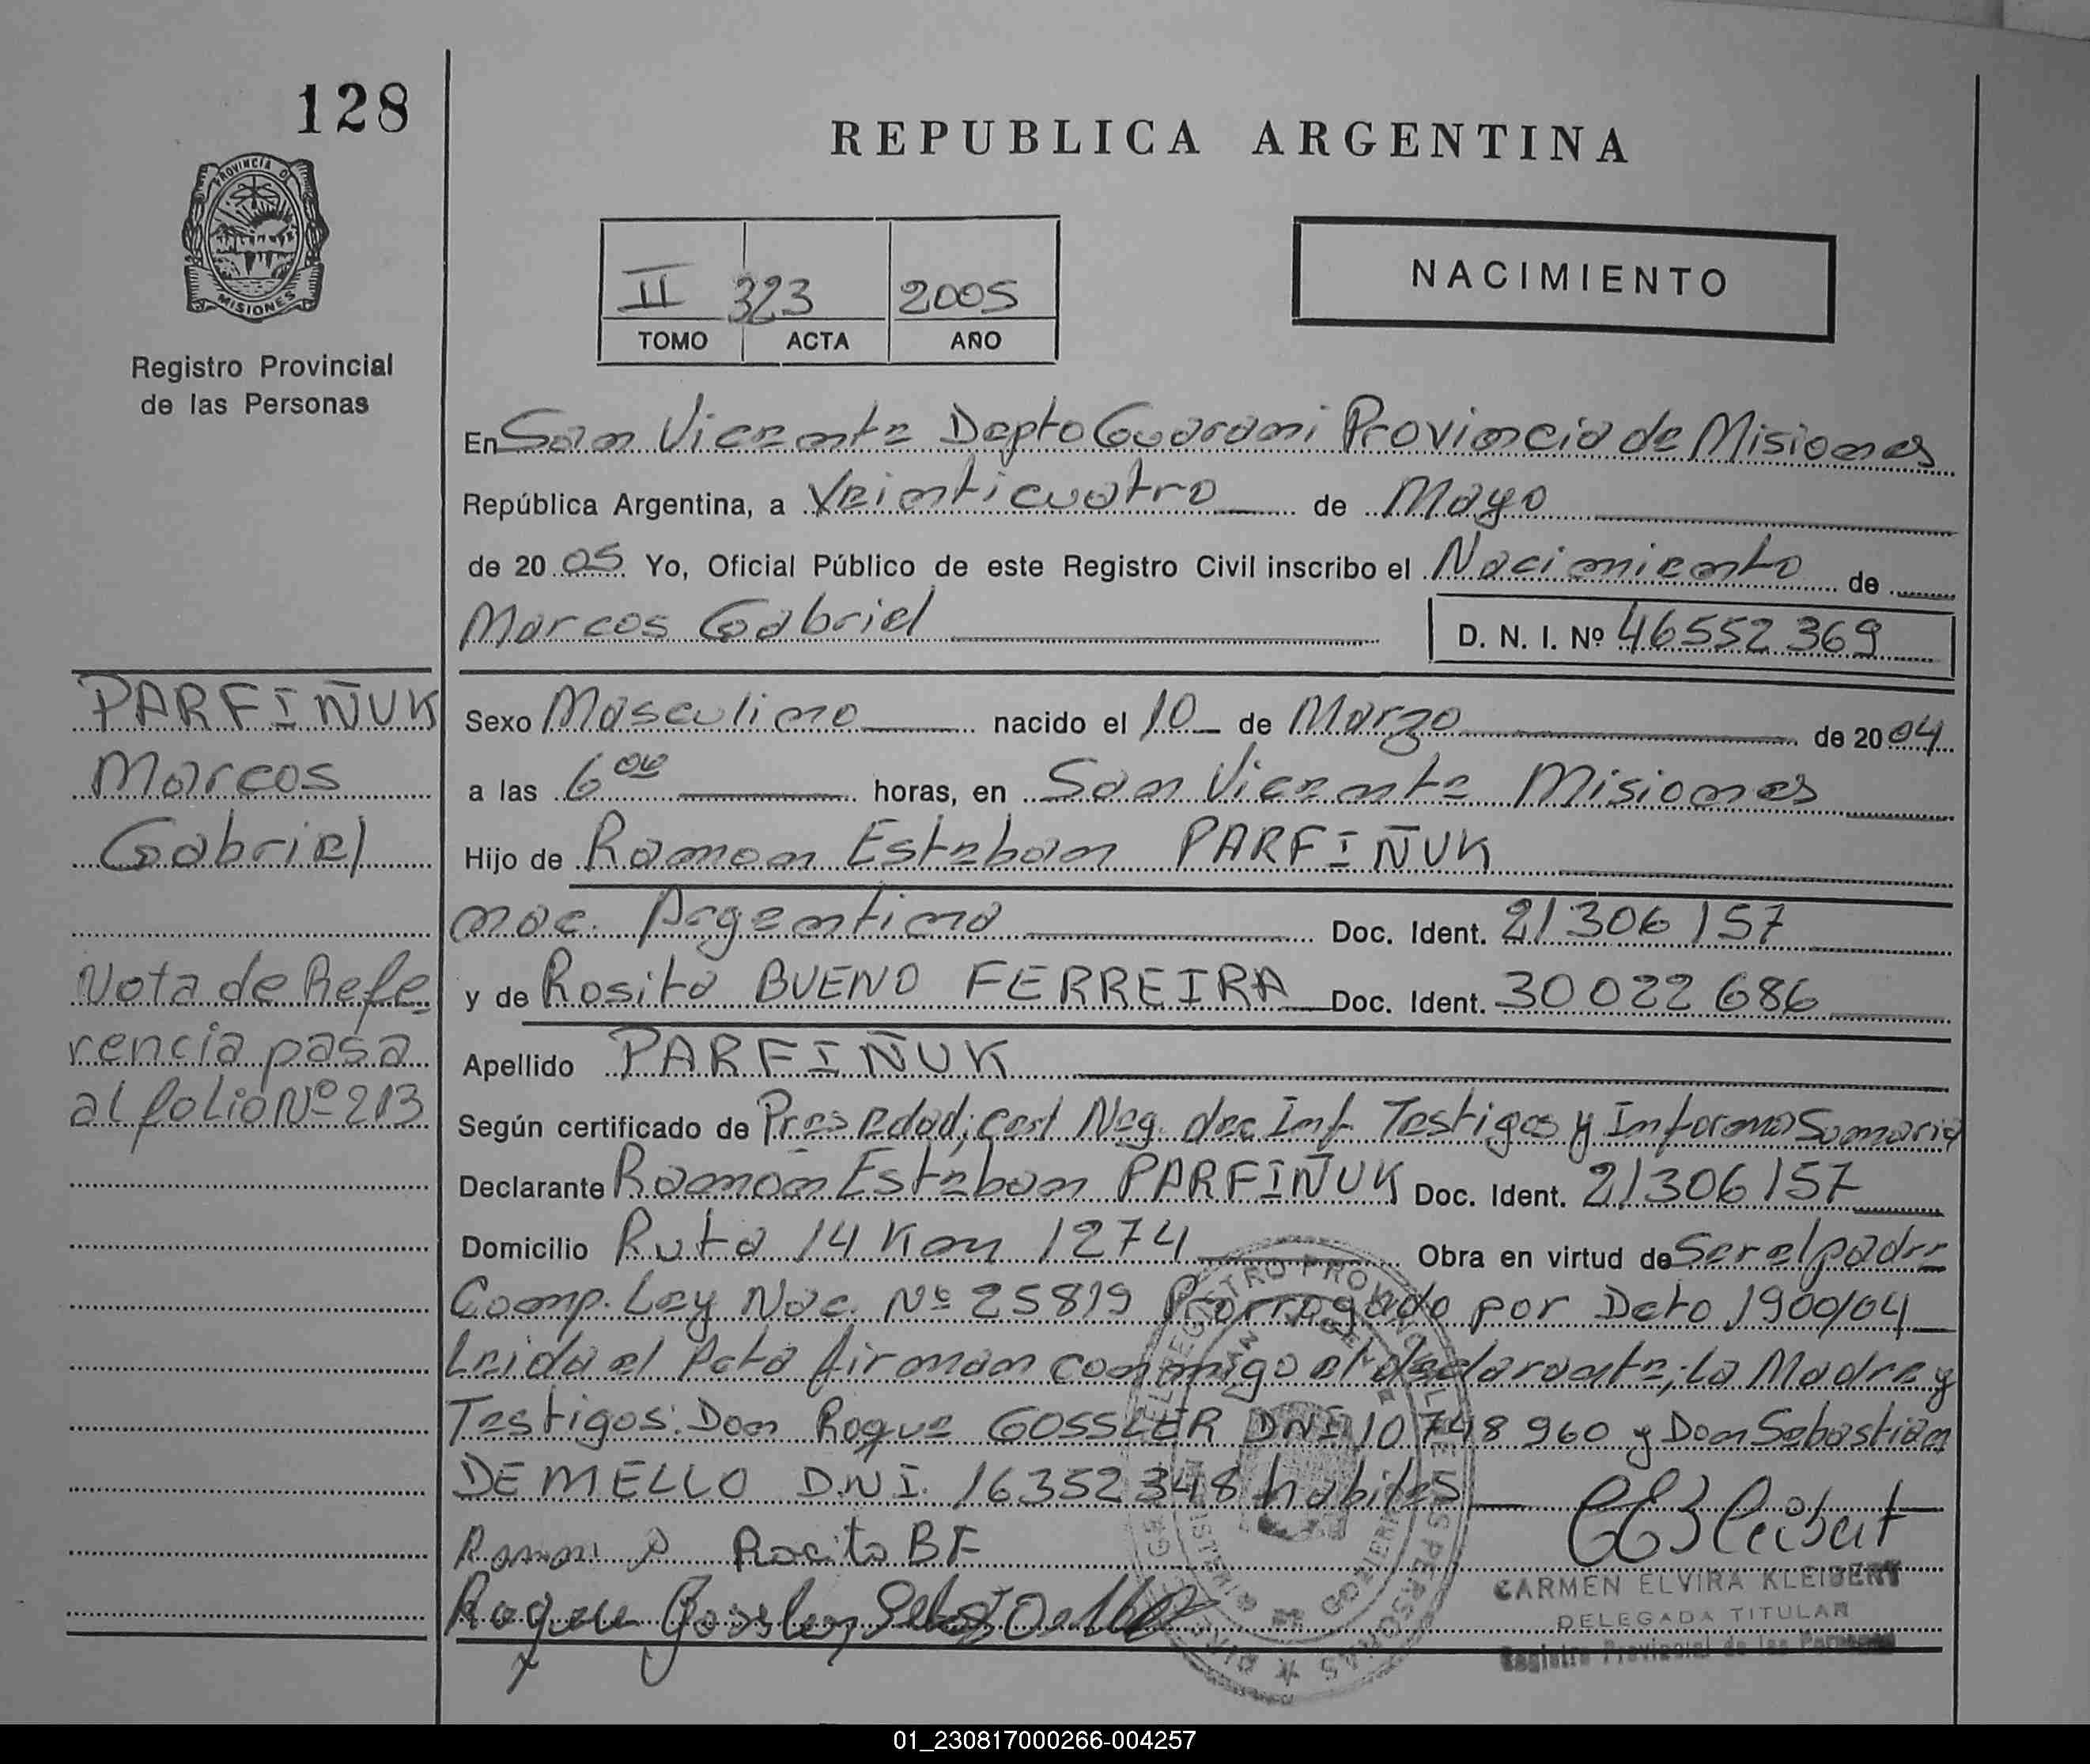 128
PROVINCIA D
MISIONES
Registro Provincial
de las Personas
REPUBLICA ARGENTINA
II 323 2005
TOMO ACTA AÑO
NACIMIENTO
En San Vicente Depto Guarani Provincia de Misiones
República Argentina, a Veinticuatro de Mayo
de 2005 Yo, Oficial Público de este Registro Civil inscribo el Nacimiento de
Marcos Gabriel D. N. I. Nº 46552369
PARFIÑUK
Marcos
Gabriel
Nota de Refe-
rencia pasa
al folio Nº 213
Sexo Masculino nacido el 10 de Marzo de 2004
a las 6 00 horas, en San Vicente Misiones
Hijo de Ramon Esteban PARFIÑUK
nac. Argentina Doc. Ident. 21306157
y de Rosita BUENO FERREIRA Doc. Ident. 30022686
Apellido PARFIÑUK
Según certificado de Pres Edad; cert Neg. dec Inf. Testigos y Informa Sumaria
Declarante Ramón Esteban PARFIÑUK Doc. Ident. 21306157
Domicilio Ruta 14 Km 1274 Obra en virtud de Ser el padre
Comp. Ley Nac. Nº 25819 Prorrogado por Dcto 1900/04
Leida el Acta firman conmigo el declarante, La Madre y
Testigos: Don Roque GOSSLER DNI 10748960 y Don Sebastian
DE MELLO D.N.I. 16352348 habiles
Ramon P Rocito BF
Roque Gossler
CARMEN ELVIRA KLEIBERT
DELEGADA TITULAR
Registro Provincial de las Personas
01_230817000266-004257